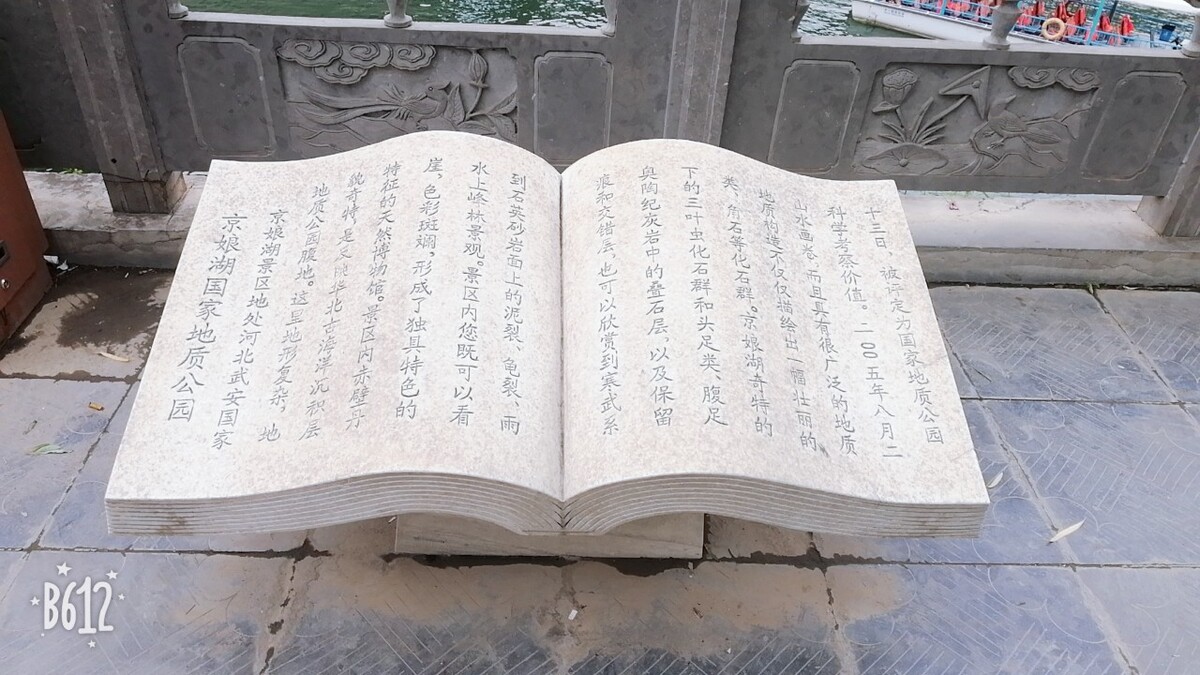 京娘湖国家地质公园
京娘湖景区地处河北武安国家
地质公园腹地。这里地形复杂，地
貌奇特是反映华北古海洋沉积层
特征的天然博物馆。景区内赤壁丹
崖，色彩斑斓，形成了独具特色的
水上峰林景观。景区内您既可以看
到石英砂岩面上的泥裂、龟裂、雨
痕和交错层，也可以欣赏到寒武系
奥陶纪灰岩中的叠石层，以及保留
下的三叶虫化石群和头足类、腹足
类、角石等化石群。京娘湖奇特的
地质构造不仅仅描绘出一幅壮丽的
山水画卷，而且具有很广泛的地质
科学考察价值。二00五年八月二
十三日，被评定为国家地质公园
B612